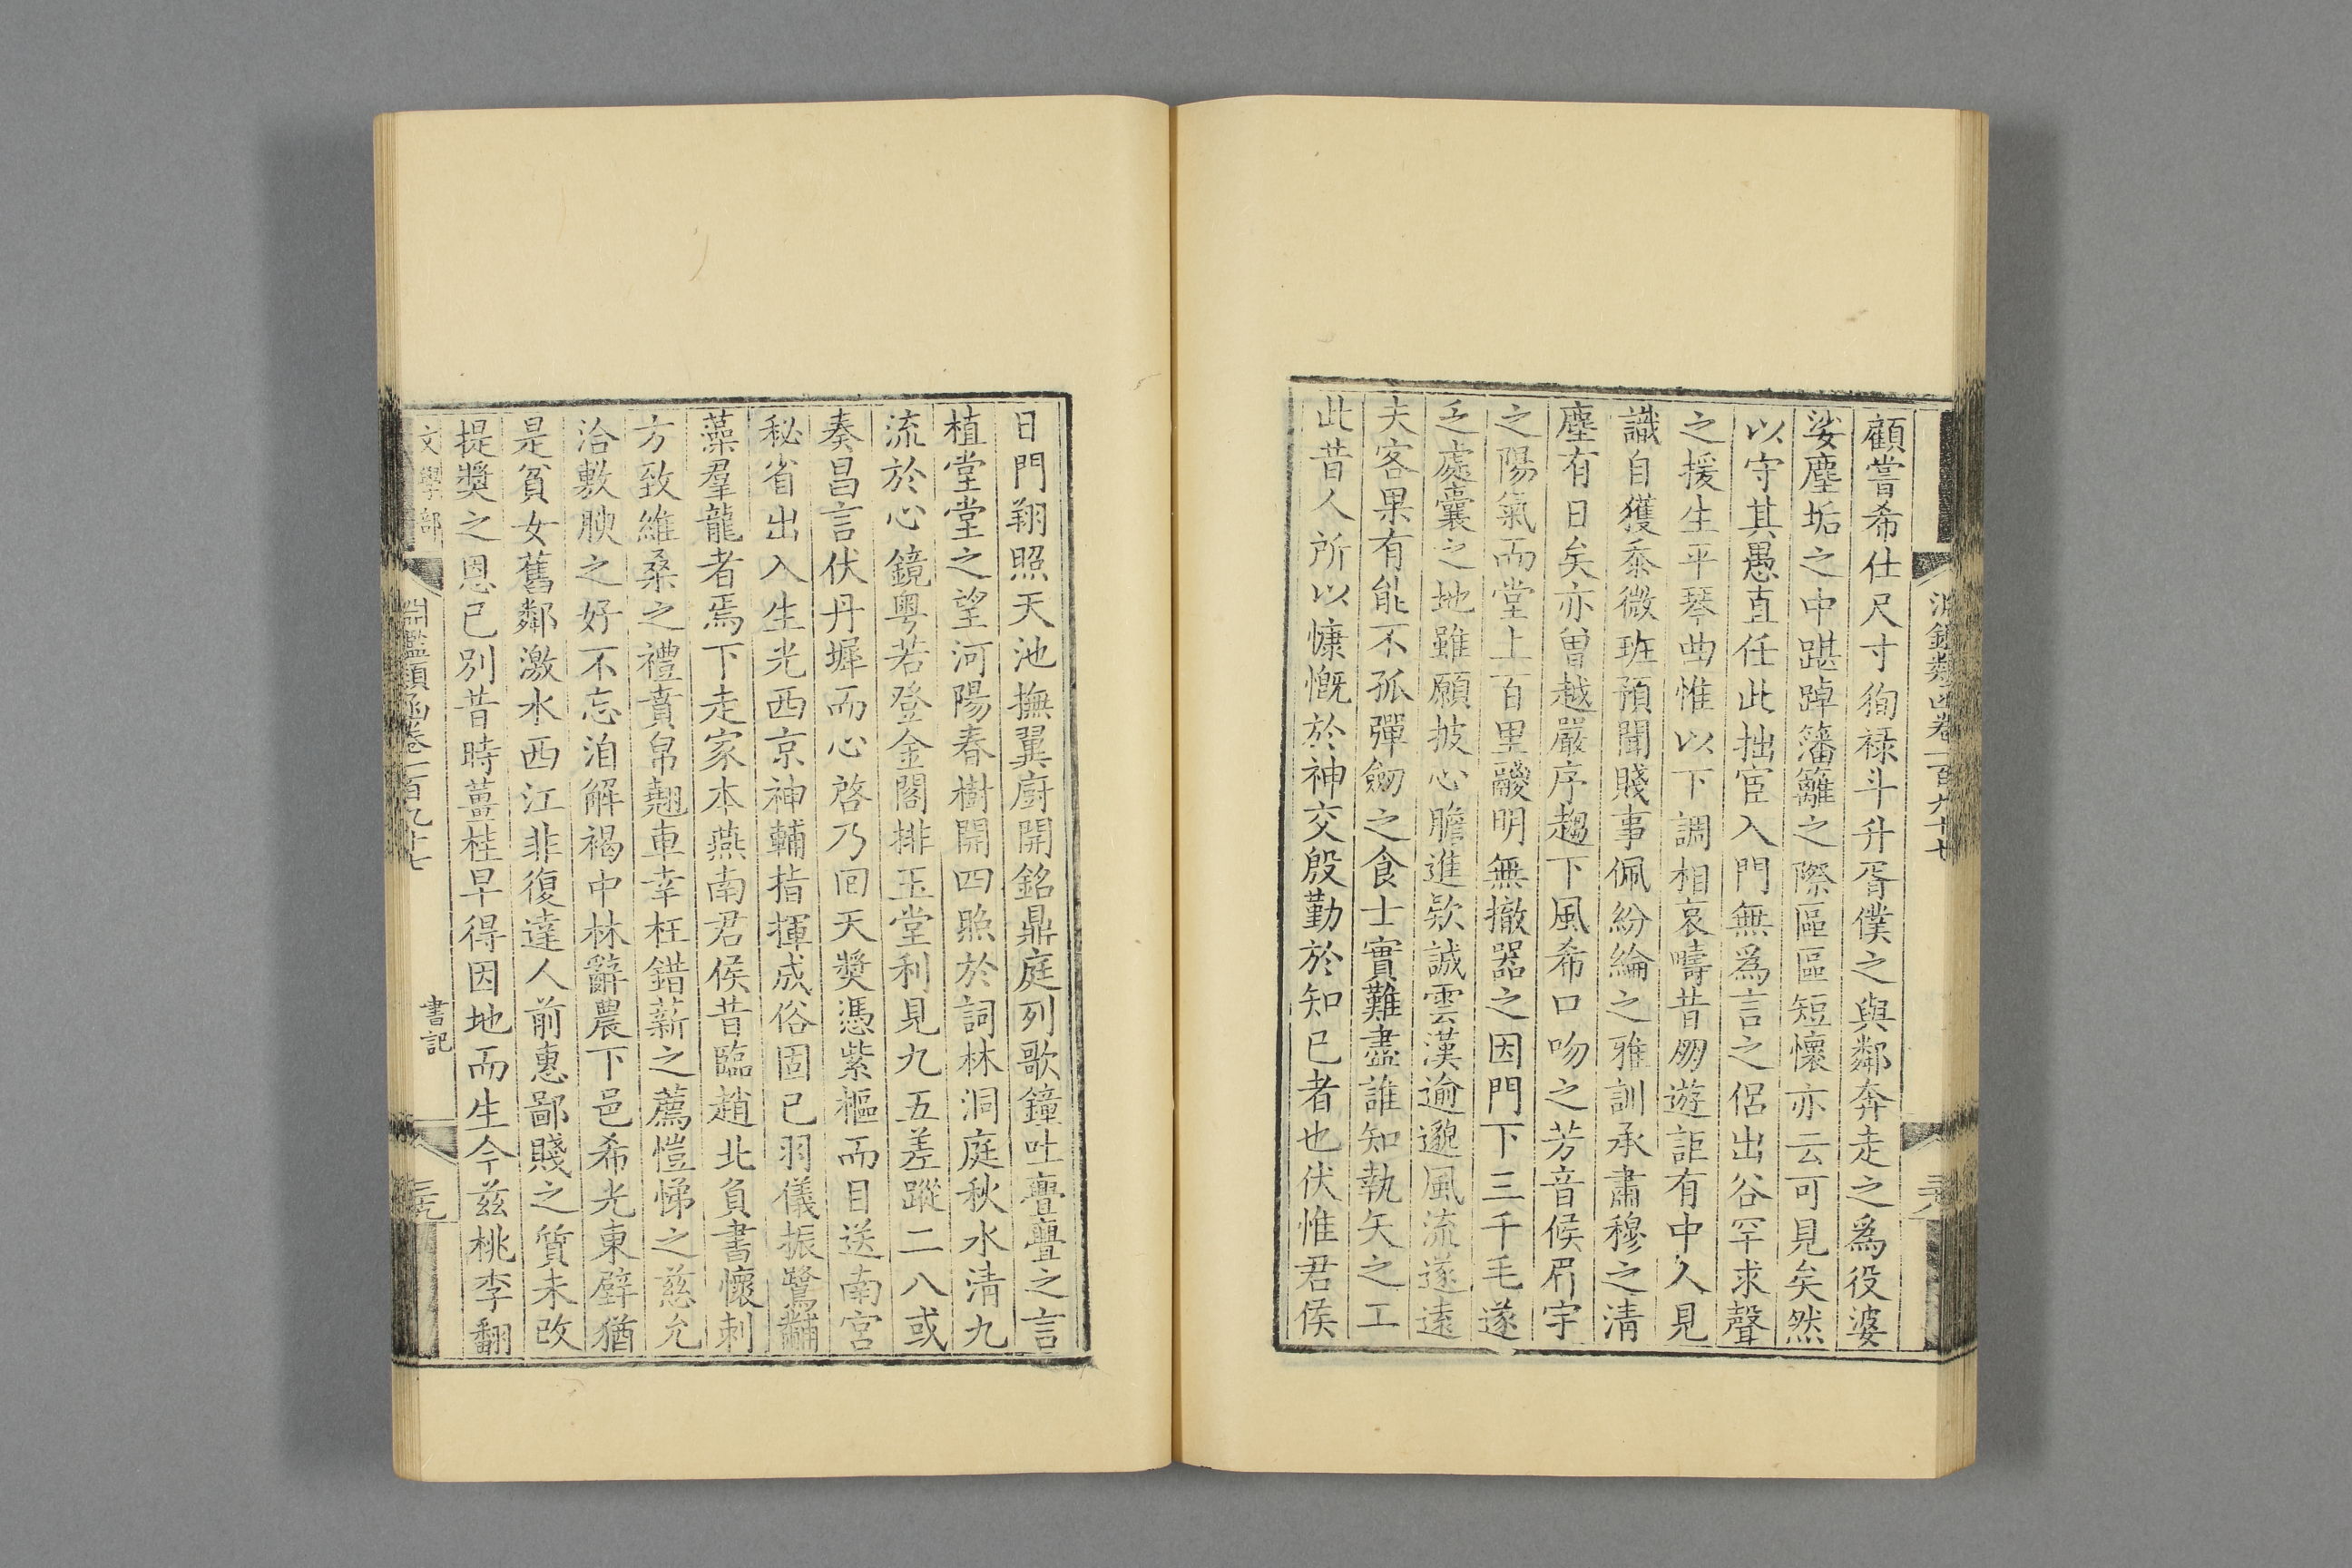 淵鑑類函卷一百九十七
顧嘗希仕尺寸徇祿斗升胥僕之與鄰奔走之爲役婆
娑塵垢之中踸踔籓籬之際區區短懷亦云可見矣然
以守其愚直任此拙宦入門無爲言之侶出谷罕求聲
之援生平琴曲惟以下調相哀疇昔朋遊詎有中人見
識自獲忝微班預聞賤事佩紛綸之雅訓承肅穆之清
塵有日矣亦曾越嚴序趨下風希口吻之芳音候眉宇
之陽氣而堂上百里靉明無撤器之因門下三千毛遂
乏處囊之地雖願披心膽進欵誠雲漢逾邈風流遂遠
夫客果有能不孤彈劒之食士實難盡誰知執矢之工
此昔人所以慷慨於神交殷勤於知已者也伏惟君侯
日門翔照天池撫翼廚開銘鼎庭列歌鐘吐亹亹之言
植堂堂之望河陽春樹開四照於詞林洞庭秋水清九
流於心鏡粵若登金閣排玉堂利見九五差蹤二八或
奏昌言伏丹墀而心啓乃回天獎憑紫樞而目送南宮
秘省出入生光西京神輔指揮成俗固已羽儀振鷺黼
藻羣龍者焉下走家本燕南君侯昔臨趙北負書懷刺
方致維桑之禮賁帛翹車幸枉錯薪之薦愷悌之慈允
洽敷腴之好不忘洎解褐中林辭農下邑希光東壁猶
是貧女舊鄰激水西江非復達人前惠鄙賤之質未改
提獎之恩已別昔時薑桂早得因地而生今茲桃李翻
文學部 淵鑑類函卷一百九十七 書記 三九